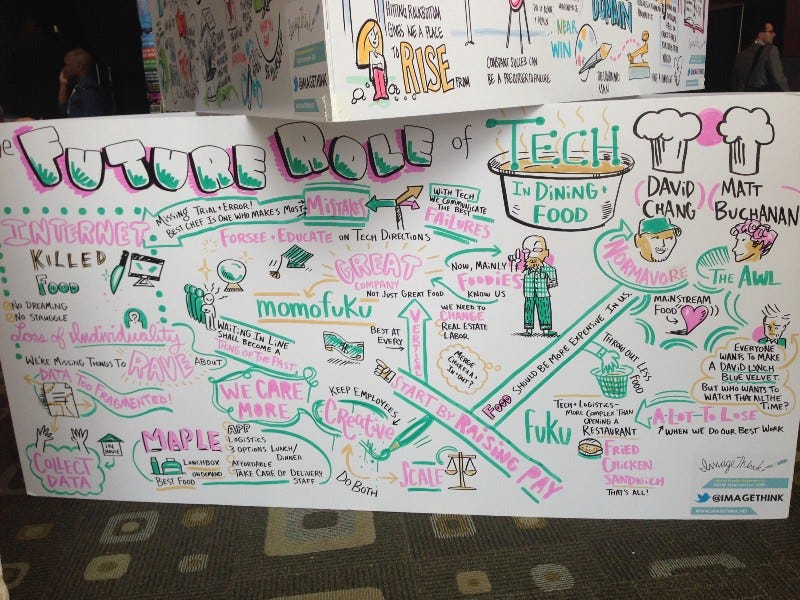 HITTING ROCKBOTTOM
GIVES ME A PLACE
TO RISE FROM
CONSTANT SUCCESS CAN
BE A PRECURSER TO FAILURE
NEAR
WIN
@IMAGETHINK
FUTURE ROLE of TECH
IN DINING +
FOOD
DAVID
CHANG
MATT
BUCHANAN
MISSING TRIAL + ERROR!
BEST CHEF IS ONE WHO MAKES MOST
MISTAKES
WITH TECH
WE COMMUNICATE
THE BEST
FAILURES
FORSEE + EDUCATE ON TECH DIRECTIONS
INTERNET
KILLED
FOOD
NO DREAMING
NO STRUGGLE
Loss of Individuality
WE'RE MISSING THINGS TO RAVE ABOUT
DATA
TOO FRAGMENTED!
COLLECT
DATA
IN HOUSE
GREAT
COMPANY
NOT JUST GREAT FOOD
NOW, MAINLY
FOODIES
KNOW US
momofuku
WAITING IN LINE
SHALL BECOME A
THING OF THE PAST.
BEST AT
EVERY
VERTICAL
WE NEED TO
CHANGE
REAL ESTATE
LABOR
MERGE
CHICK FIL A +
IN + OUT?
WE CARE
MORE
MAPLE
LUNCHBOX
ON DEMAND
BEST FOOD
APP
LOGISTICS
3 OPTIONS LUNCH/
DINNER
AFFORDABLE
TAKE CARE OF DELIVERY
STAFF
KEEP EMPLOYEES
CREATIVE
DO BOTH
SCALE
START BY RAISING PAY
FOOD SHOULD BE MORE EXPENSIVE IN U.S.
NORMAVORE
THE AWL
MAINSTREAM
FOOD
THROW OUT LESS
FOOD
EVERYONE
WANTS TO MAKE
A DAVID LYNCH
BLUE VELVET.
BUT WHO WANTS TO
WATCH THAT ALL THE
TIME?
FUKU
TECH + LOGISTICS -
MORE COMPLEX THAN
OPENING A
RESTAURANT
FRIED
CHICKEN
SANDWICH
THAT'S ALL!
A LOT TO LOSE
WHEN WE DO OUR BEST WORK
ImageThink
@IMAGETHINK
WWW.IMAGETHINK.NET